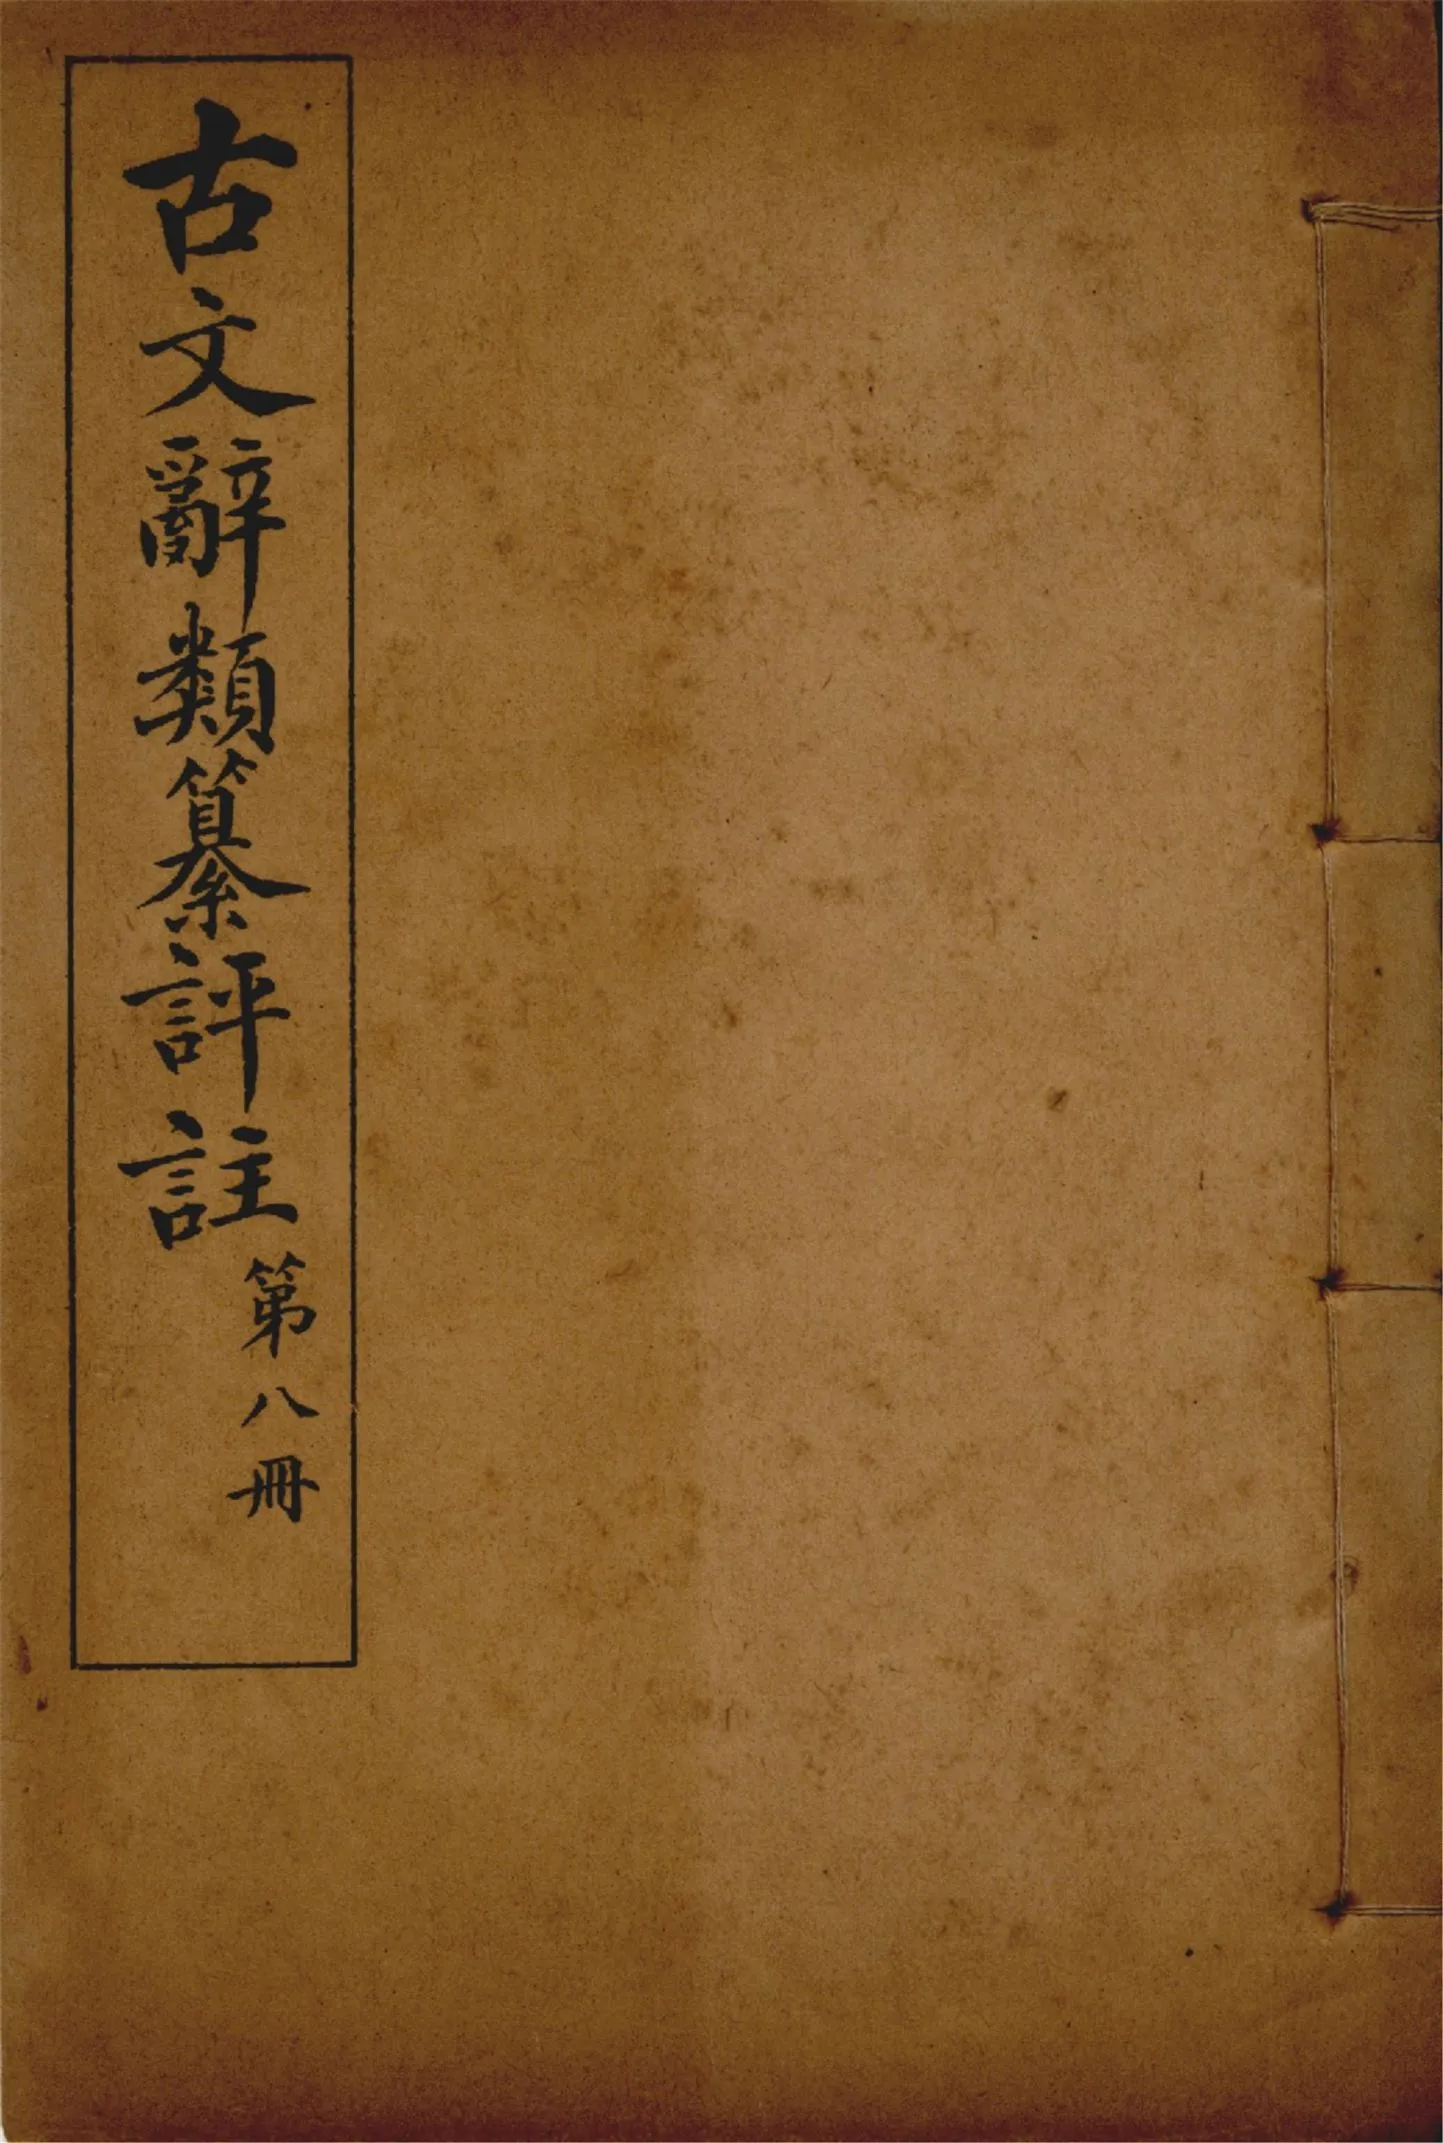 古文辭類纂評註
第八冊